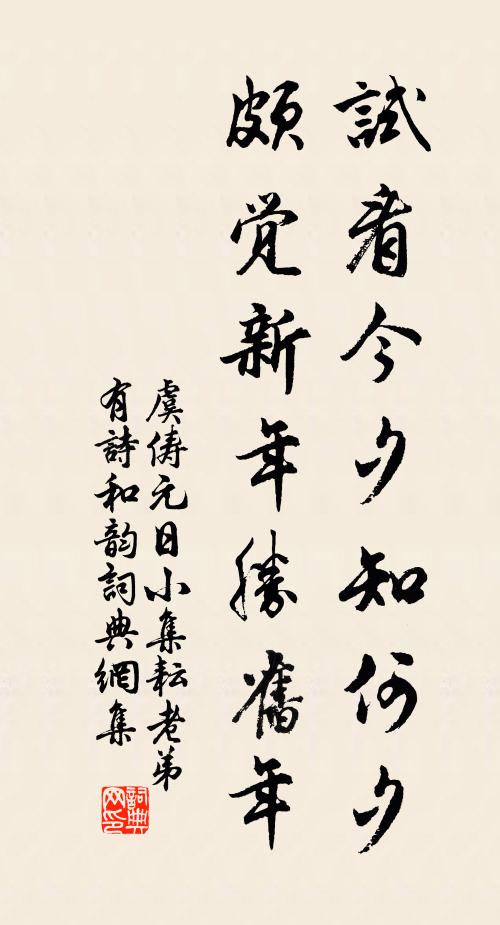 試看今夕知何夕
頗覚新年勝舊年
虞儔元日小集耘老弟
有詩和韵詞典網集
詞典
网印